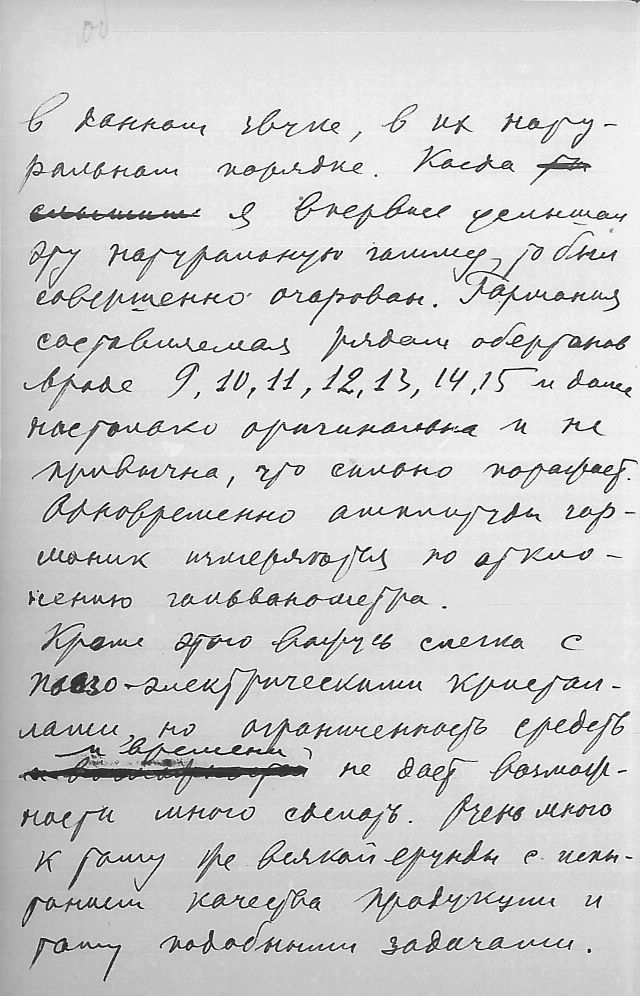 в данном звуке, в их нату-
ральном порядке. Когда
я впервые услышал
эту натуральную гамму, то был
совершенно очарован. Гармония
составляемая рядом обертонов
вроде 9, 10, 11, 12, 13, 14, 15 и далее
настолько оригинальна и не
привычна, что сильно поражает.
Одновременно амплитуды гар-
моник измеряются по откло-
нению гальванометра.
Кроме этого вожусь слегка с
пьезо-электрическими кристал-
лами, но ограниченность средств
и времени
не дает возмож-
ности много сделать. Очень много
к тому же всякой ерунды с испы-
танием качества продукции и
тому подобными задачами.